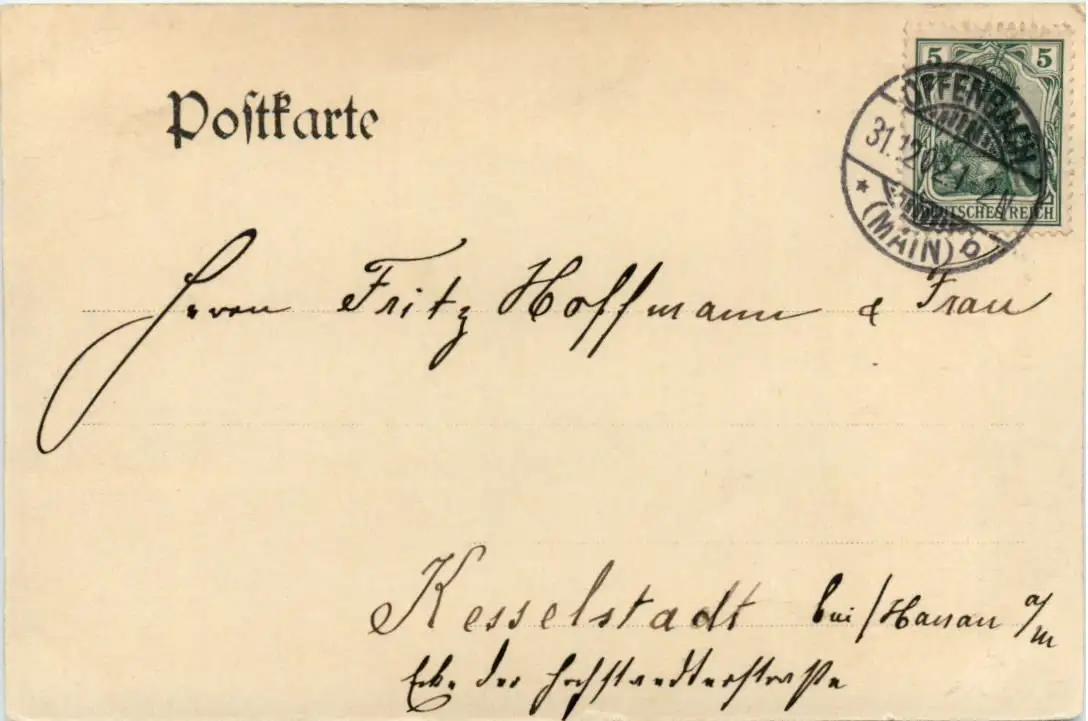 Postkarte
5 5
OFFENBACH
31.12.02.1-2N
* (MAIN) b
DEUTSCHES REICH
Herrn Fritz Hoffmann & Frau
Kesselstadt bei/Hanau a/m
Ecke der Hochstaedterstraße